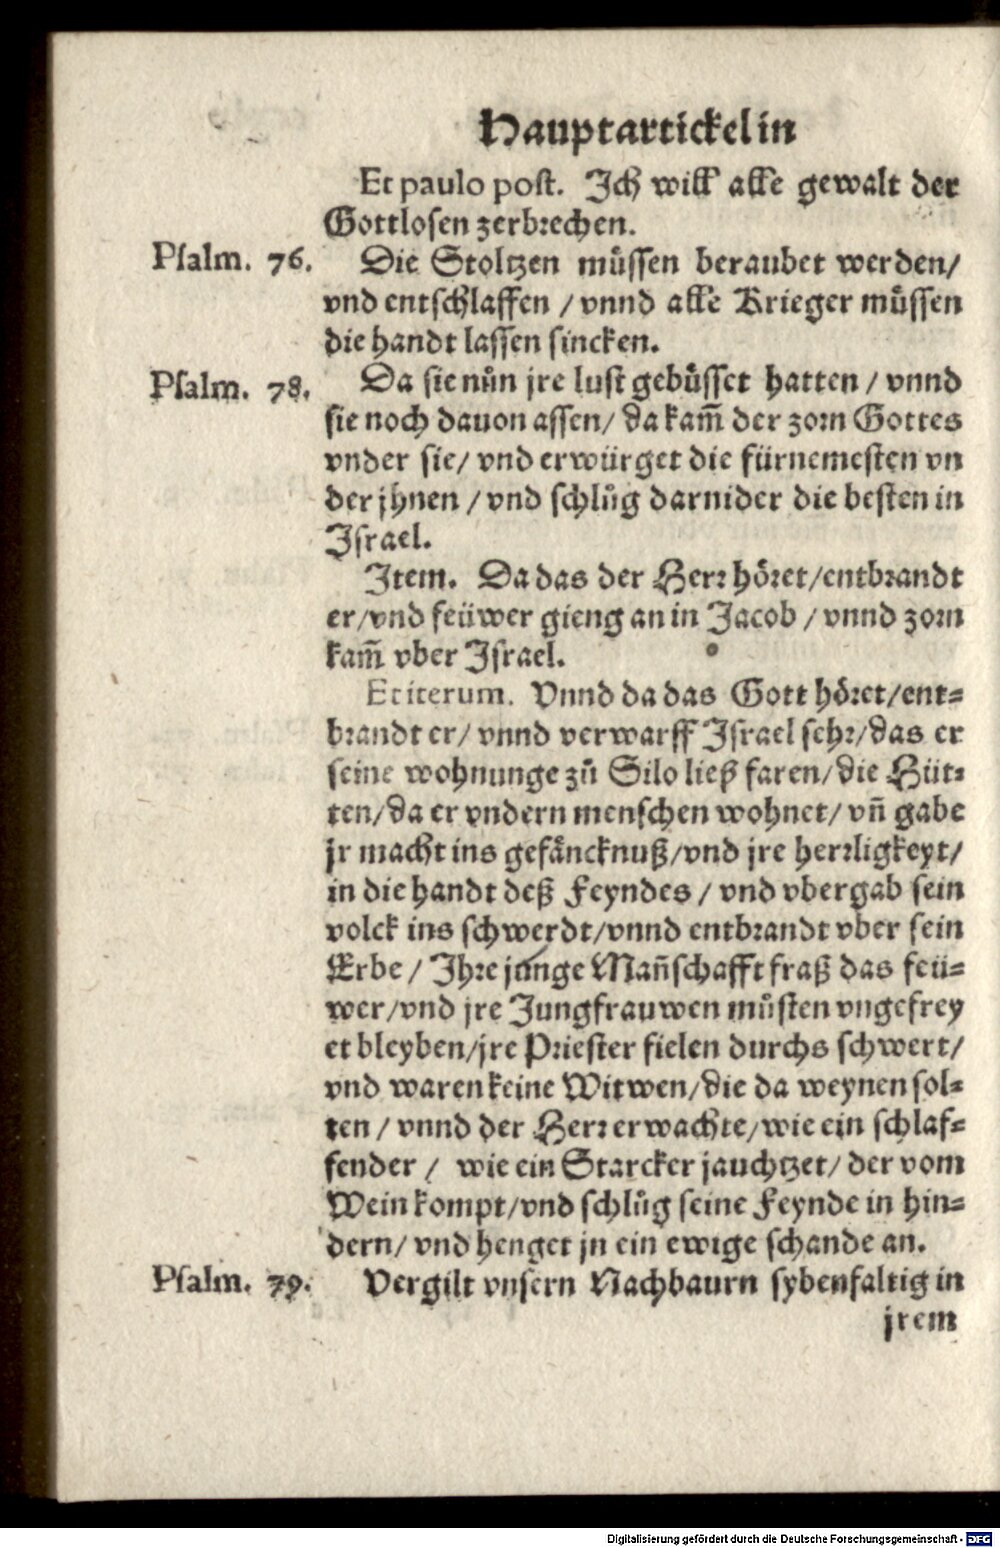 Hauptartickel in
Et paulo post. Jch will alle gewalt der
Gottlosen zerbrechen.
Psalm. 76. Die Stoltzen müssen beraubet werden/
vnd entschlaffen / vnnd alle Krieger müssen
die handt lassen sincken.
Psalm. 78. Da sie nůn jre lust gebüsset hatten / vnnd
sie noch dauon assen/ da kam̃ der zorn Gottes
vnder sie/ vnd erwürget die fürnemesten vn
der jhnen / vnd schlůg darnider die besten in
Jsrael.
Jtem. Da das der Herr höret/entbrandt
er/vnd feüwer gieng an in Jacob / vnnd zorn
kam̃ vber Jsrael.
Et iterum. Vnnd da das Gott höret/ent=
brandt er/ vnnd verwarff Jsrael sehr/das er
seine wohnunge zů Silo ließ faren/die Hüt=
ten/da er vndern menschen wohnet/ vñ gabe
jr macht ins gefäncknuß/vnd jre herrligkeyt/
in die handt deß Feyndes / vnd vbergab sein
volck ins schwerdt/vnnd entbrandt vber sein
Erbe / Jhre junge Mañschafft fraß das feü=
wer/vnd jre Jungfrauwen můsten vngefrey
et bleyben/jre Priester fielen durchs schwert/
vnd waren keine Witwen/die da weynen sol=
ten / vnnd der Herr erwachte/wie ein schlaf=
fender / wie ein Starcker jauchtzet/ der vom
Wein kompt/vnd schlůg seine Feynde in hin=
dern/ vnd henget jn ein ewige schande an.
Psalm. 79. Vergilt vnsern Nachbaurn sybenfaltig in
jrem
Digitalisierung gefördert durch die Deutsche Forschungsgemeinschaft - DFG